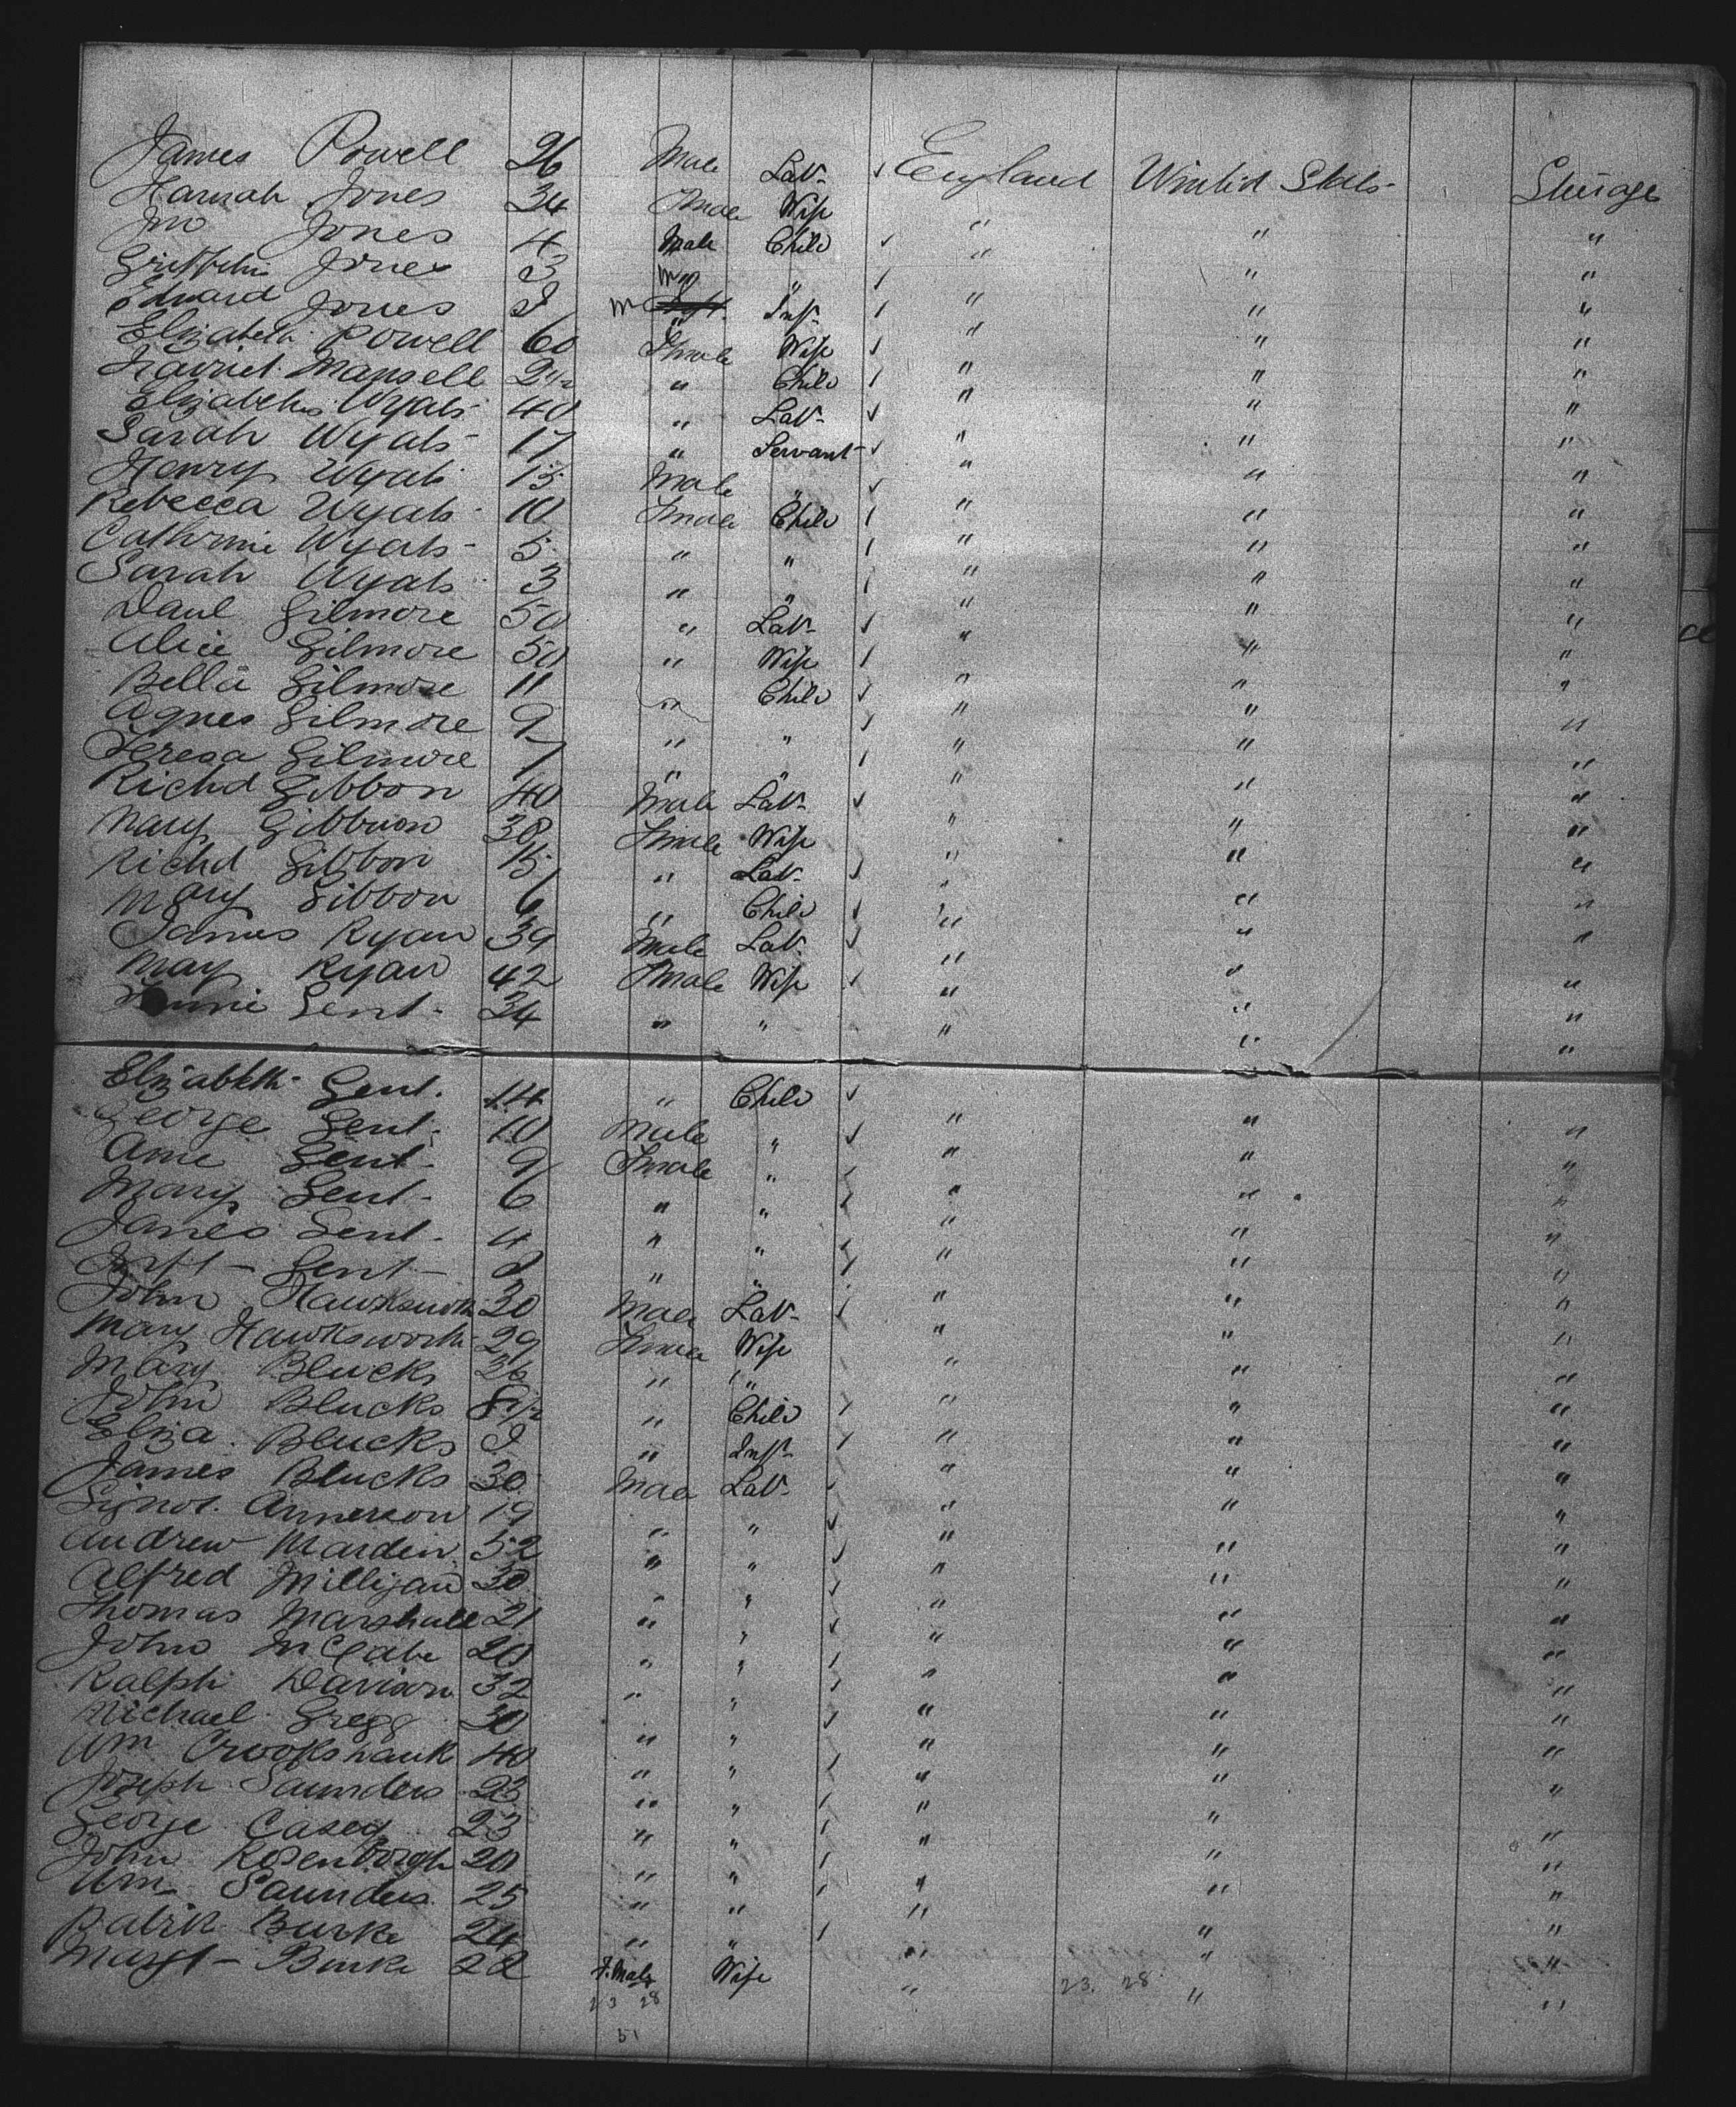 James Powell 26 Male Lab- ✓ England United States- Steerage
Hannah Jones 34 Fmale Wife " " "
Jno Jones 4 Male Child ✓ " " "
Griffith Jones 3 M " " " " "
Edward Jones I M Inf- " " "
Elizabeth Powell 60 Fmale Wife ✓ " " "
Harriet Mansell 2 1/2 " Child " " "
Elizabeth Wyatt 40 " Lab- ✓ " " "
Sarah Wyatt- 17 " Servant- ✓ " " "
Henry Wyatt 15 Male " ✓ " " "
Rebecca Wyatt- 10 Fmale Child " " "
Cathrine Wyatt- 5 " " " " "
Sarah Wyatt 3 " " " " "
Danl Gilmore 50 " Lab- ✓ " " "
Alice Gilmore 50 " Wife " " "
Bella Gilmore 11 " Child ✓ " " "
Agnes Gilmore 9 " " ✓ " " "
Teresa Gilmore 7 " " " " "
Richd Gibbon 40 Male Lab- ✓ " " "
Mary Gibbon 38 Fmale Wife " " "
Richd Gibbon 15 " Lab- ✓ " " "
Mary Gibbon 6 " Child ✓ " " "
James Ryan 39 Male Lab- ✓ " " "
Mary Ryan 42 Fmale Wife ✓ " " "
Gent- 34 " " " " "
Elizabeth Gent. 14 " Child ✓ " " "
George Gent. 10 Male " ✓ " " "
Anne Gent- 9 Fmale " " " "
Mary Gent- 6 " " " " "
James Gent- 4 " " " " "
Inft- Gent- I " " " " "
John Hawksworth 30 Male Lab- ✓ " " "
Mary Hawksworth 29 Fmale Wife " " "
Mary Blucks 26 " " " " "
John Blucks 8 1/2 " Child " " "
Eliza Blucks I " Inft- " " "
James Blucks 30 Male Lab- ✓ " " "
Annerson 19 " " ✓ " " "
Andrew Marden 52 " " ✓ " " "
Alfred Milligan 30 " " ✓ " " "
Thomas Marshall 21 " " ✓ " " "
John McCabe 20 " " " " "
Ralph Davison 32 " " " " "
Michael Gregg 30 " " ✓ " " "
Wm Crookshank 40 " " " " "
Joseph Saunders 23 " " " " "
George Casey 23 " " " " "
John Rosenborgh 20 " " " " "
Wm Saunders 25 " " " " "
Patrik Burke 24 " " " " "
Margt- Burke 22 F.Male Wife " " "
23 28 23. 28
51